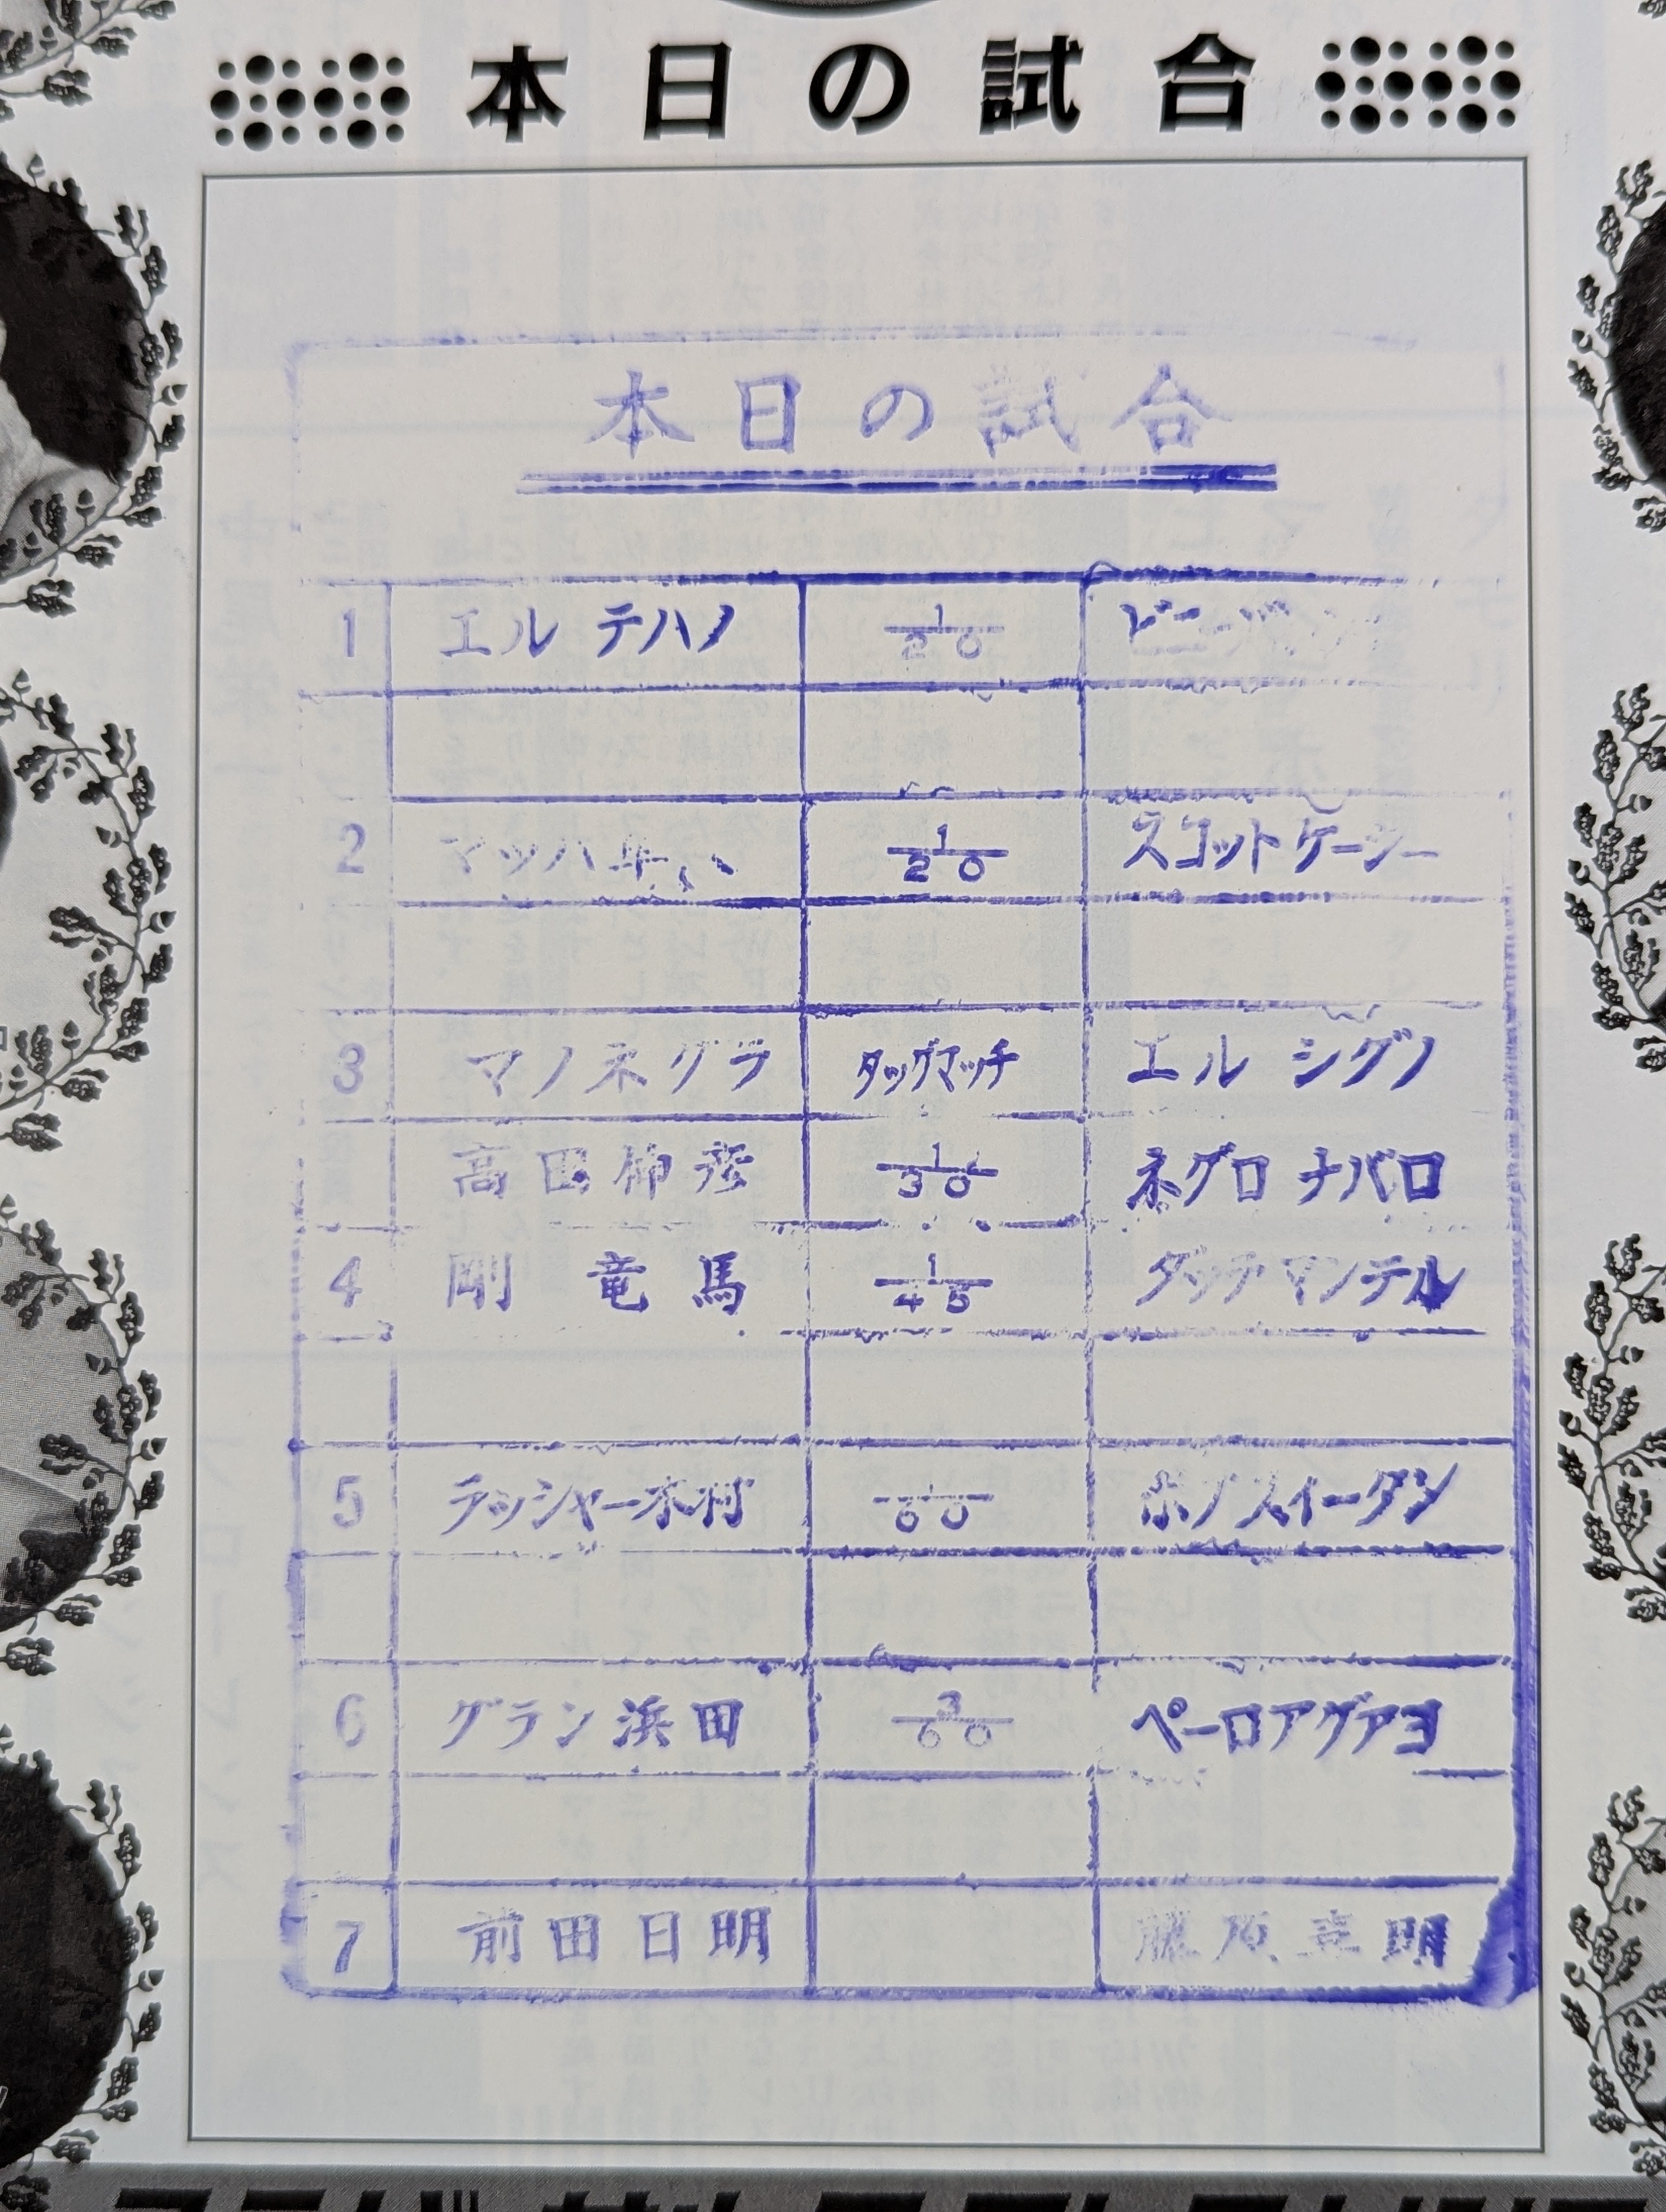 本日の試合
本日の試合
1 エル テハノ 1/20
2 マッハ 1/20 スコットケーシー
3 マノネグラ タッグマッチ エル シグノ
高田伸彦 1/30 ネグロ ナバロ
4 剛 竜馬 1/45 ダッチマンテル
5 ラッシャー木村 1/60 ボブスイータン
6 グラン浜田 3/60 ペーロアグアヨ
7 前田日明 藤原喜明